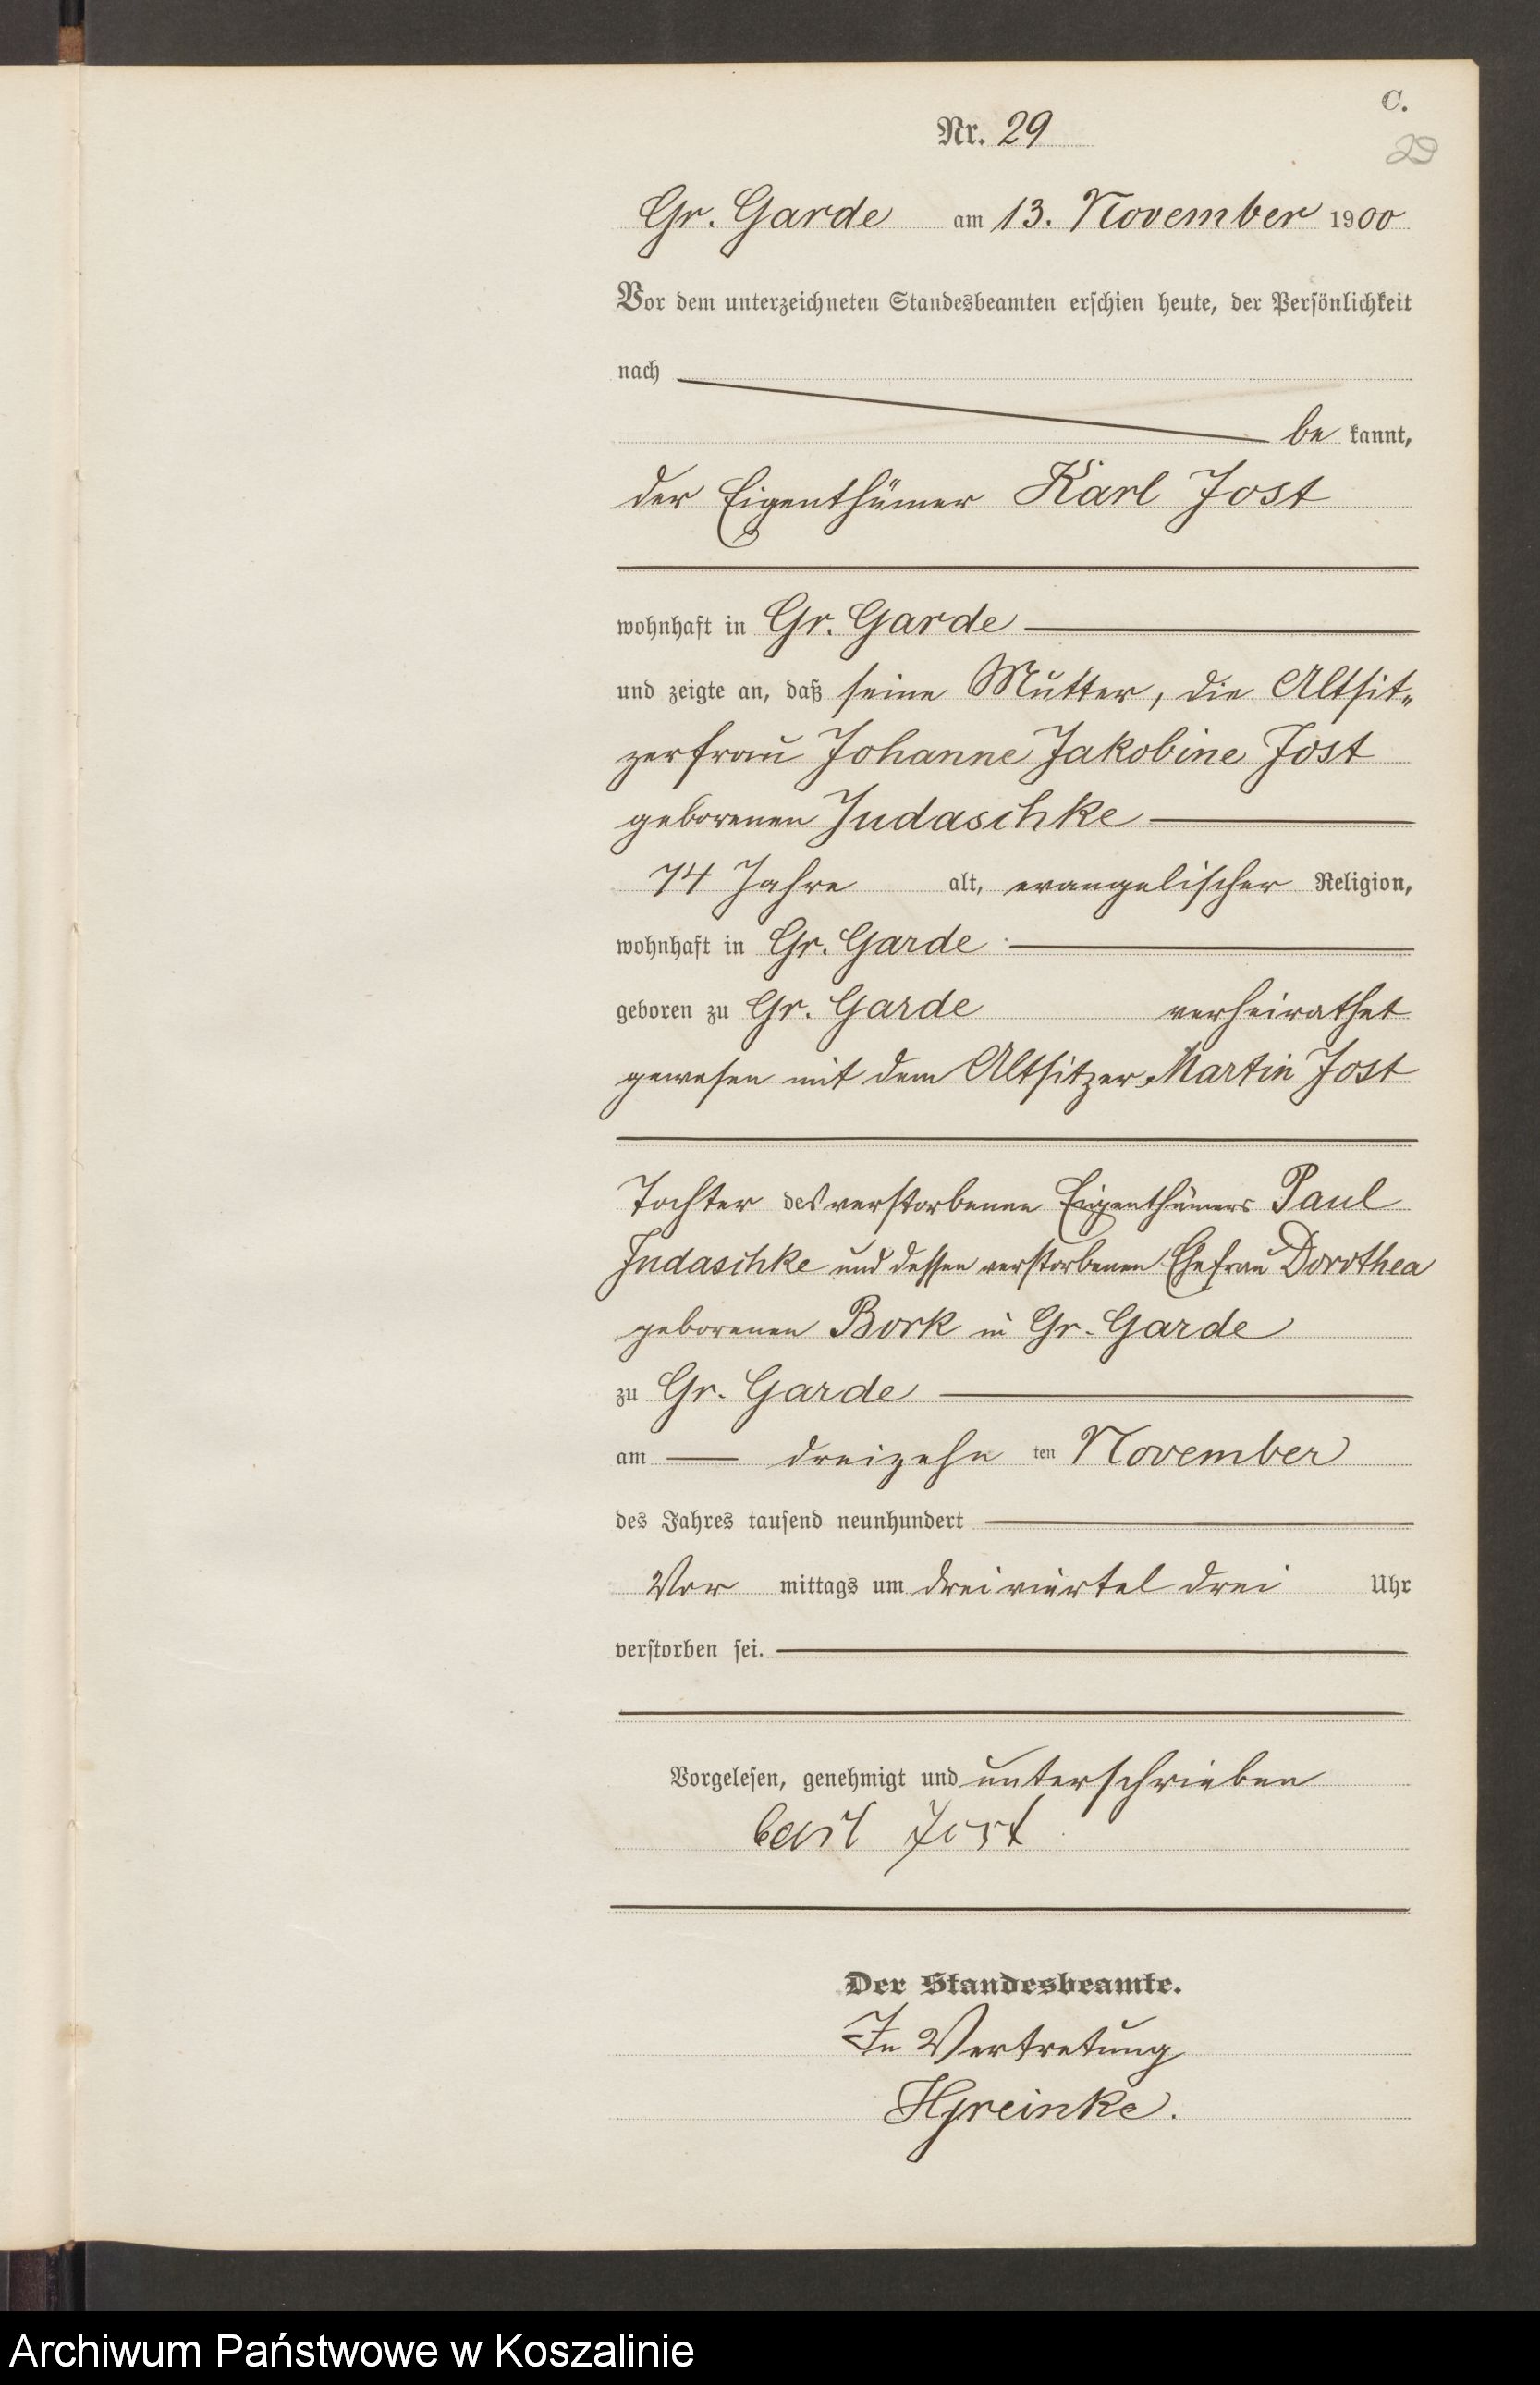 C.
Nr. 29
29
Gr. Garde am 13. November 1900
Vor dem unterzeichneten Standesbeamten erschien heute, der Persönlichkeit
nach
be kannt,
der Eigenthümer Karl Jost
wohnhaft in Gr. Garde
und zeigte an, daß seine Mutter, die Altsit„
zerfrau Johanne Jakobine Jost
geborenen Judaschke
74 Jahre alt, evangelischer Religion,
wohnhaft in Gr. Garde
geboren zu Gr. Garde verheirathet
gewesen mit dem Altsitzer Martin Jost
Tochter des verstorbenen Eigenthümers Paul
Judaschke und dessen verstorbenen Ehefrau Dorothea
geborenen Bork in Gr. Garde
zu Gr. Garde
am dreizehn ten November
des Jahres tausend neunhundert
Vor mittags um dreiviertel drei Uhr
verstorben sei.
Vorgelesen, genehmigt und unterschrieben
Carl Jost
Der Standesbeamte.
In Vertretung
Archiwum Państwowe w Koszalinie